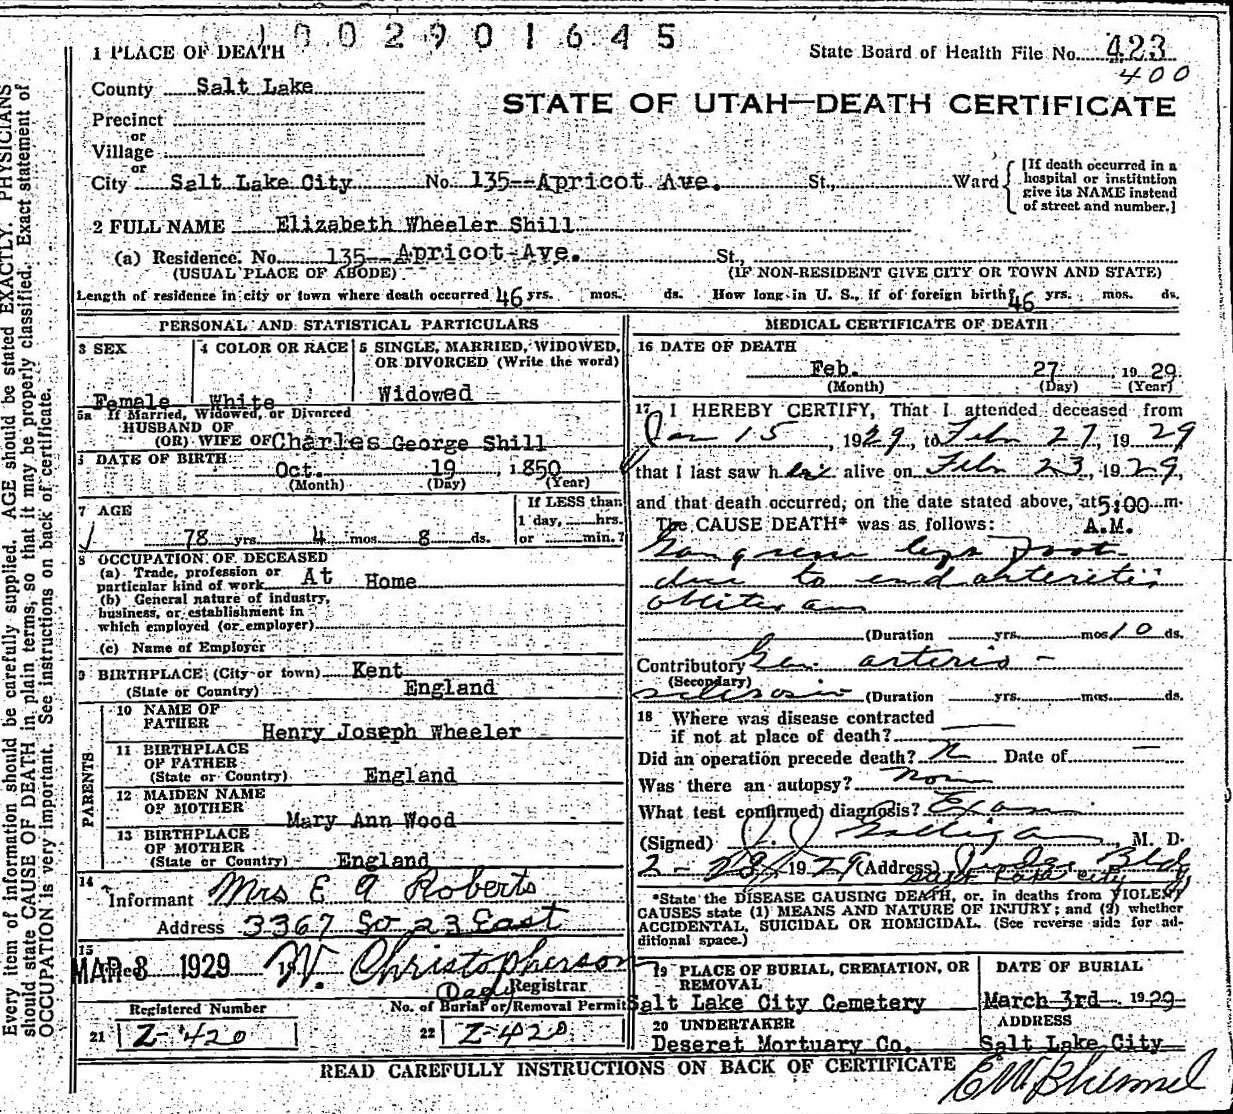 1002901645
1 PLACE OF DEATH
State Board of Health File No. 423
400
County Salt Lake
STATE OF UTAH—DEATH CERTIFICATE
Precinct
or
Village
or
City Salt Lake City No. 135--Apricot Ave. St., Ward
[If death occurred in a
hospital or institution
give its NAME instead
of street and number.]
2 FULL NAME Elizabeth Wheeler Shill
(a) Residence. No. 135--Apricot-Ave. St.,
(USUAL PLACE OF ABODE) (IF NON-RESIDENT GIVE CITY OR TOWN AND STATE)
Length of residence in city or town where death occurred 46 yrs. mos. ds. How long in U. S., if of foreign birth? 46 yrs. mos. ds.
PERSONAL AND STATISTICAL PARTICULARS
3 SEX
Female
4 COLOR OR RACE
White
5 SINGLE, MARRIED, WIDOWED,
OR DIVORCED (Write the word)
Widowed
5a If Married, Widowed, or Divorced
HUSBAND OF
(OR) WIFE OF Charles George Shill
6 DATE OF BIRTH
Oct. 19 1850
(Month) (Day) (Year)
7 AGE
78 yrs. 4 mos. 8 ds.
If LESS than
1 day, hrs.
or min.?
8 OCCUPATION OF DECEASED
(a) Trade, profession or
particular kind of work At Home
(b) General nature of industry,
business, or establishment in
which employed (or employer)
(c) Name of Employer
9 BIRTHPLACE (City or town) Kent
(State or Country) England
PARENTS
10 NAME OF
FATHER
Henry Joseph Wheeler
11 BIRTHPLACE
OF FATHER
(State or Country) England
12 MAIDEN NAME
OF MOTHER
Mary Ann Wood
13 BIRTHPLACE
OF MOTHER
(State or Country) England
14
Informant Mrs E A Roberts
Address 3367 So 23 East
15
Filed MAR 3 1929 W. Christopherson
Depy Registrar
Registered Number
21 Z-420
No. of Burial or Removal Permit
22 Z-420
MEDICAL CERTIFICATE OF DEATH
16 DATE OF DEATH
Feb. 27 1929
(Month) (Day) (Year)
17 I HEREBY CERTIFY, That I attended deceased from
Jan 15, 1929, to Feb 27, 1929
that I last saw her alive on Feb 23, 1929,
and that death occurred, on the date stated above, at 5:00 m.
The CAUSE DEATH* was as follows: A.M.
Gangrene legs Foot
due to endarteritis
obliterans
(Duration yrs. mos 10 ds.
Contributory Gen. arterio-
(Secondary)
sclerosis (Duration yrs. mos. ds.
18 Where was disease contracted
if not at place of death?
Did an operation precede death? N Date of
Was there an autopsy? None
What test confirmed diagnosis? Exam
(Signed) J. J. Galligan M. D.
2-28 1929 (Address) Judge Bld
Salt Lake City
*State the DISEASE CAUSING DEATH, or, in deaths from VIOLENT
CAUSES state (1) MEANS AND NATURE OF INJURY; and (2) whether
ACCIDENTAL, SUICIDAL OR HOMICIDAL. (See reverse side for ad-
ditional space.)
19 PLACE OF BURIAL, CREMATION, OR
REMOVAL
Salt Lake City Cemetery
DATE OF BURIAL
March 3rd 1929
20 UNDERTAKER
Deseret Mortuary Co.
ADDRESS
Salt Lake City
READ CAREFULLY INSTRUCTIONS ON BACK OF CERTIFICATE
Every item of information should be carefully supplied. AGE should be stated EXACTLY. PHYSICIANS
should state CAUSE OF DEATH in plain terms, so that it may be properly classified. Exact statement of
OCCUPATION is very important. See instructions on back of certificate.